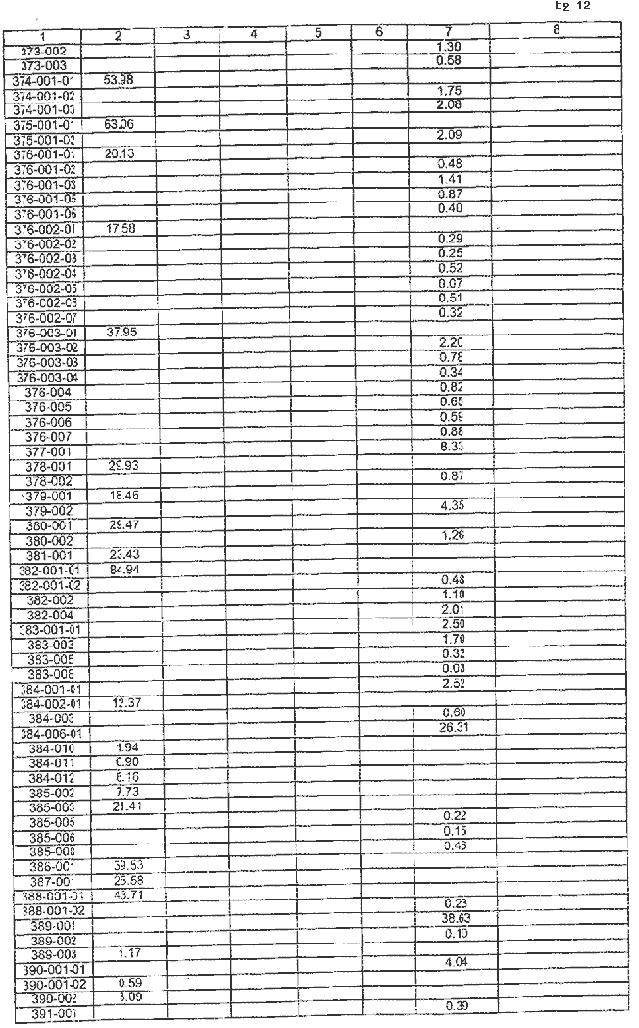 12
1 2 3 4 5 6 7 8
373-002 1.30
373-003 0.58
374-001-01 53.98
374-001-02 1.75
374-001-03 2.08
375-001-01 63.06
375-001-02 2.09
376-001-01 20.13
376-001-02 0.48
376-001-03 1.41
376-001-05 0.87
376-001-06 0.40
376-002-01 17.58
376-002-02 0.29
376-002-03 0.25
376-002-04 0.52
376-002-05 0.07
376-002-06 0.51
376-002-07 0.32
376-003-01 37.95
376-003-02 2.20
376-003-03 0.78
376-003-04 0.34
376-004 0.82
376-005 0.65
376-006 0.59
376-007 0.88
377-001
378-001 29.93
378-002 0.87
379-001 18.46
379-002 4.35
380-001 29.47
380-002 1.26
381-001 23.43
382-001-01 84.94
382-001-02 0.48
382-002 1.10
382-004 2.01
383-001-01 2.50
383-003 1.79
383-005 0.32
383-006 0.03
384-001-01 2.52
384-002-01
384-003 0.60
384-006-01 26.31
384-010 1.94
384-011
384-012
385-002 7.73
385-003 21.41
385-005 0.22
385-006
385-008
386-001
387-001 25.58
388-001-01 43.71
388-001-02 0.23
389-001 38.63
389-002 0.10
389-003 1.17
390-001-01 4.04
390-001-02 0.59
390-002 3.09
391-001 0.39